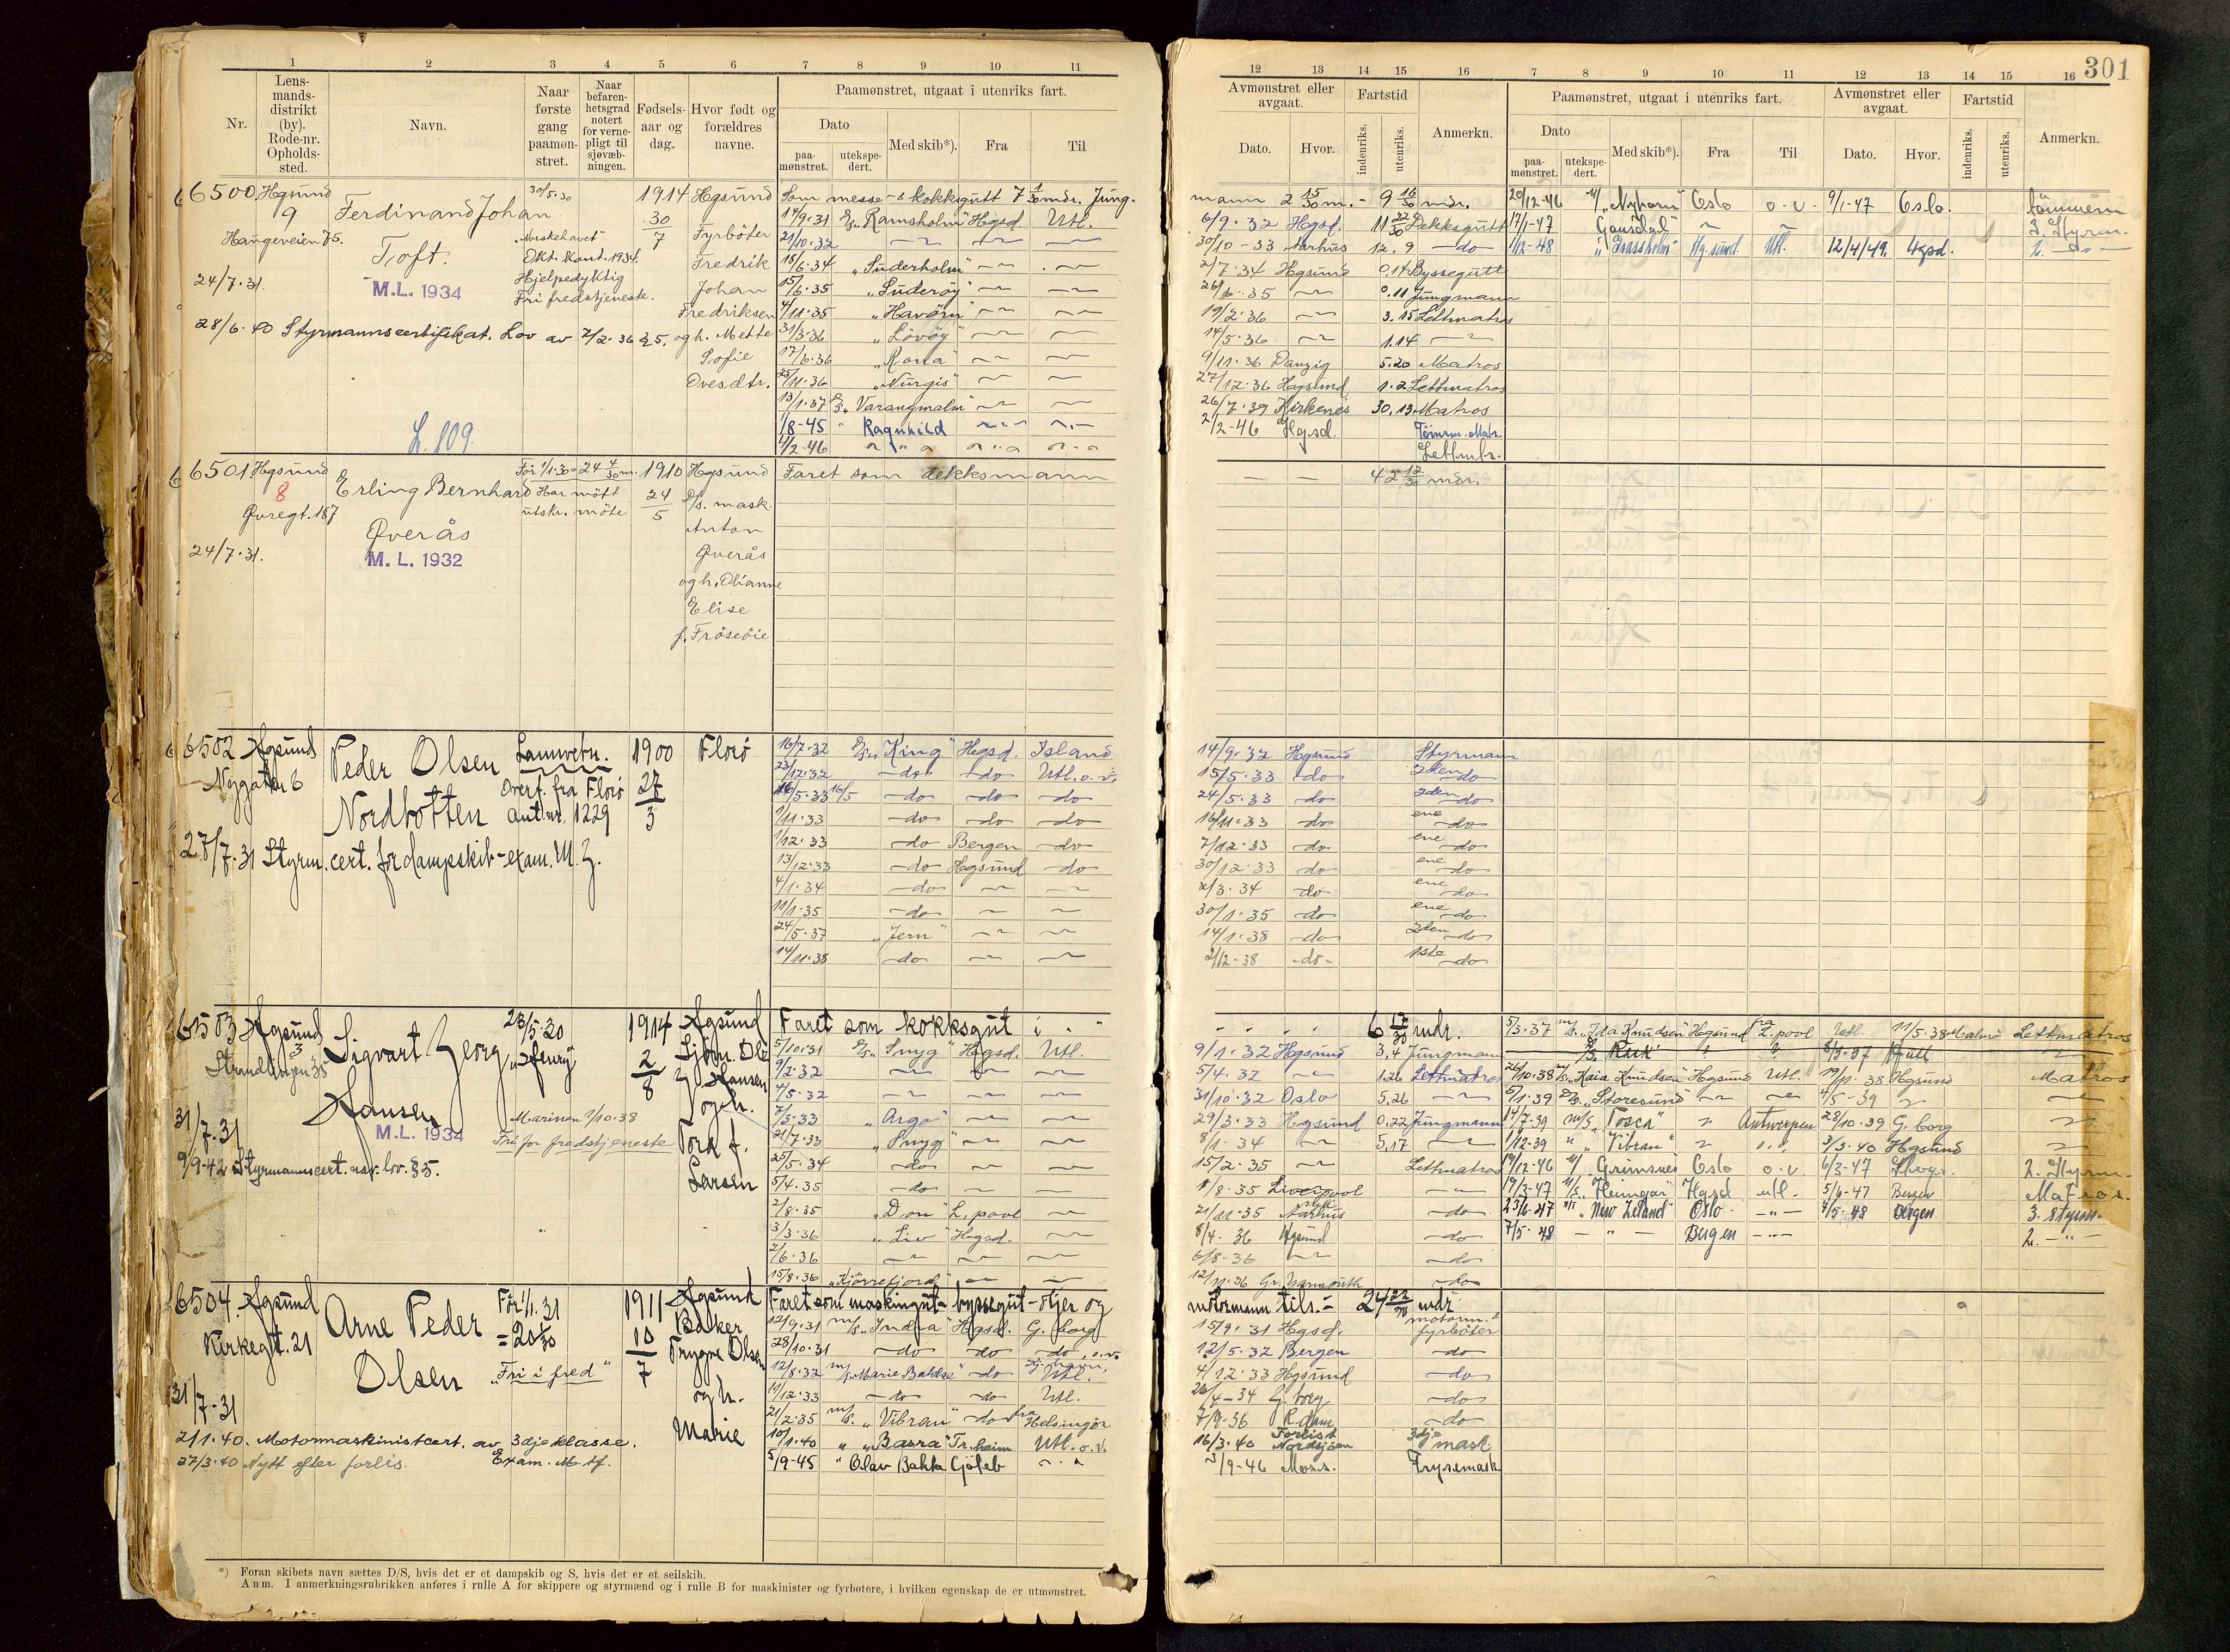 301
1 2 3 4 5 6 7 8 9 10 11
Nr.
Lens-
mands-
distrikt
(by).
Rode-nr.
Opholds-
sted.
Navn.
Naar
første
gang
paamøn-
stret.
Naar
befaren-
hetsgrad
notert
for verne-
pligt til
sjøvæb-
ningen.
Fødsels-
aar og
dag.
Hvor født og
forældres
navne.
Paamønstret, utgaat i utenriks fart.
Dato
paa-
mønstret.
utekspe-
dert.
Med skib*).
Fra
Til
6500 Hgsund
9
Haugeveien 75.
24/7.31.
Ferdinand Johan
Toft.
M.L. 1934
30/5.30
"Norskehavet"
Okt. kont. 1934.
Hjelpedyktig
Fri fredstjeneste.
28/6.40 Styrmannscertifikat. Lov av 7/2.36 § 5.
L. 809.
1914
30/7
Hgsund
Fyrbøter
Fredrik
Johan
Fredriksen
og h. Mette
Sofie
Ovesdtr.
Som messe- & kokksgutt 7 1/30 mdr. Jung-
14/9.31 D/S "Ramsholm" Hgsd. Utl.
21/10.32
18/6.34 "Suderholm"
15/6.35 "Suderöy"
4/11.35 "Havörn"
31/3.36 "Lövöy"
17/6.36 "Rona"
25/11.36 "Nurgis"
13/1.37 D/S "Varangmalm"
1/8-45 " Ragnhild
4/2-46
6501 Hgsund
8
Øvregt. 187
24/7.31.
Erling Bernhard
Øverås
M.L. 1932
Før 1/1.30 = 24 4/30 m.
Har mött
utskr. möte
1910
24/5
Hgsund
D/s. mask.
Anton
Øverås
og h. Olianne
Elise
f. Fröseöie
Faret som dekksmann
6502 Hgsund
Nygaten 6
Peder Olsen
Nordbotten
Landvetn.
Overf. fra Florö
Ant. nr. 1229
1900
27/3
Florö
27/7.31 Styrm. cert. for dampskib-exam. M. Z.
16/7.32 D/S "King" Hgsd. Island
23/12.32 -do- -do- Utl. o.v.
16/5.33 16/5 -do- -do- -do-
1/11.33 -do- -do- -do-
1/12.33 -do- Bergen -do-
13/12.33 -do- Hgsund -do-
4/1.34 -do-
11/1.35 -do-
24/5.37 "Jern"
14/11.38 -do-
6503 Hgsund
3
31/7.31
Sigvart Georg
Hansen
M.L. 1934
23/5.20
"Henry"
Marinen 1/10.38
Fri for fredstjeneste
9/9-42 Styrmannscert. nav. lov. § 5.
1914
2/8
Hgsund
Hansen
og h.
Tora f.
Larsen
Faret som kokksgut i
5/10.31 D/S "Snyg" Hgsd. Utl.
9/2.32
4/5.32
7/3.33 "Argo"
21/7.33 "Snyg"
25/5.34 -do-
5/4.35 -do-
2/8.35 "Don" L.pool
3/3.36 "Liv" Hgsd.
2/6.36
15/8.36 "Kjörrefjord"
6504. Hgsund
Kirkegt. 21
31/7-31
Arne Peder
Olsen
Før 1/1.31
"Fri i fred"
1911
10/7
Hgsund
Baker
Trygve Olsen
og h.
Marie
2/1.40. Motormaskinistcert. av 3dje klasse.
27/3.40 Nytt efter forlis. Exam. M.tf.
Faret som maskingut - byssegut - oljer og
12/9.31 M/S "Indra" Hgsd. G. borg
28/10.31 -do- -do- -do- o.v.
12/8.32 M/S "Marie Bakke" -do- Utl.
11/12.33 -do- -do- Utl.
21/2.35 M/S "Vibran" -do- fra Helsingör
10/1.40 " "Basra" Tr.heim Utl. o.v.
5/9-45 " Olav Bakke Gjøteb
*) Foran skibets navn sættes D/S, hvis det er et dampskib og S, hvis det er et seilskib.
Anm. I anmerkningsrubrikken anføres i rulle A for skippere og styrmænd og i rulle B for maskinister og fyrbøtere, i hvilken egenskap de er utmønstret.
12 13 14 15 16 7 8 9 10 11 12 13 14 15 16
Avmønstret eller
avgaat.
Fartstid
Dato.
Hvor.
indenriks.
utenriks.
Anmerkn.
Paamønstret, utgaat i utenriks fart.
Dato
paa-
mønstret.
utekspe-
dert.
Med skib*).
Fra
Til
Avmønstret eller
avgaat.
Dato.
Hvor.
Fartstid
indenriks.
utenriks.
Anmerkn.
mann 2 15/30 m. - 9 16/30 mdr.
6/9.32 Hgsd. 11 22/30 Dekksgutt
30/10-33 Aarhus 12.9 -do-
2/7.34 Hgsund 0.14 Byssegutt
0.11 Jungmann
19/2.36 3.15 Lettmatros
14/5.36 1.14
9/11.36 Danzig 5.20 Matros
27/12.36 Hagsund 1.2 Lettmatros
26/7.39 Kirkenes 30.13 Matros
2/2-46 Hgsd. Tömm. Matr.
Lettmtr.
20/12-46 "Nyhorn" Oslo o.v. 9/1-47 Oslo. tömmerm
17/1-47 Gausdal 3. Styrm.
1/12-48 "Grassholm" Hg.sund. Utl. 12/4/49. Hgsd. 2. -do-
42 17/30 mdr.
14/9.32 Hgsund Styrmann
15/5.33 -do- 2den -do-
24/5.33 -do- 2den -do-
16/11.33 -do- ene -do-
7/12.33 -do- ene -do-
30/12.33 -do- ene -do-
2/3.34 -do- ene -do-
30/1.35 -do- ene -do-
14/1.38 -do- 2den -do-
2/12-38 -do- 1ste -do-
6 17/30 mdr.
9/1.32 Hgsund 3,4 Jungmann
5/4.32 1.26 Lettmatros
31/10.32 Oslo 5.26
29/3.33 Hgsund 0.22 Jungmann
8/1.34 5,17
15/2.35 Lettmatros
11/8.35 Liverpool
21/11-35 Aarhus -do-
8/4.36 Hgsund -do-
6/8-36 -do-
12/11.36 Gr. Yarmouth -do-
5/3.37 M/S "Ida Knudsen" Hgsund fra L.pool Utl. 11/5.38 Malmö Lettmatros
8/3-37
26/10.38 M/S "Kaia Knudsen" Hgsund Utl. 19/11.38 Hgsund Matros
9/1.39 D/S "Storesund"
14/7.39 M/S "Tosca" Antwerpen 28/10.39 G. borg
1/12.39 " "Vibran" o.v. 3/3.40 Hgsund
19/12-46 M/ "Grimsnes" Oslo o.v. 6/3-47 2. Styrm.
19/3-47 M/S "Heimgar" Hgsd utl. 5/6-47 Bergen Matros.
23/6-47 M/S "New Zeland" Oslo 7/5-48 Bergen 3. Styrm.
7/5-48 Bergen 2.
motormann tils. = 24 22/30 mdr
15/9.31 Hgsd. motorm. & fyrböter
12/5.32 Bergen -do-
4/12.33 Hgsund -do-
G. borg -do-
R.dam -do-
16/3.40 Forlist Nordsjøen 3dje mask
3/9-46 Moss. Frysemask